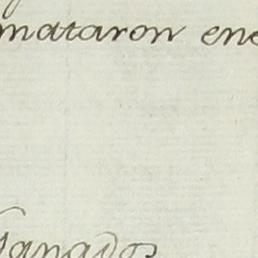 mataron ene
Ganados